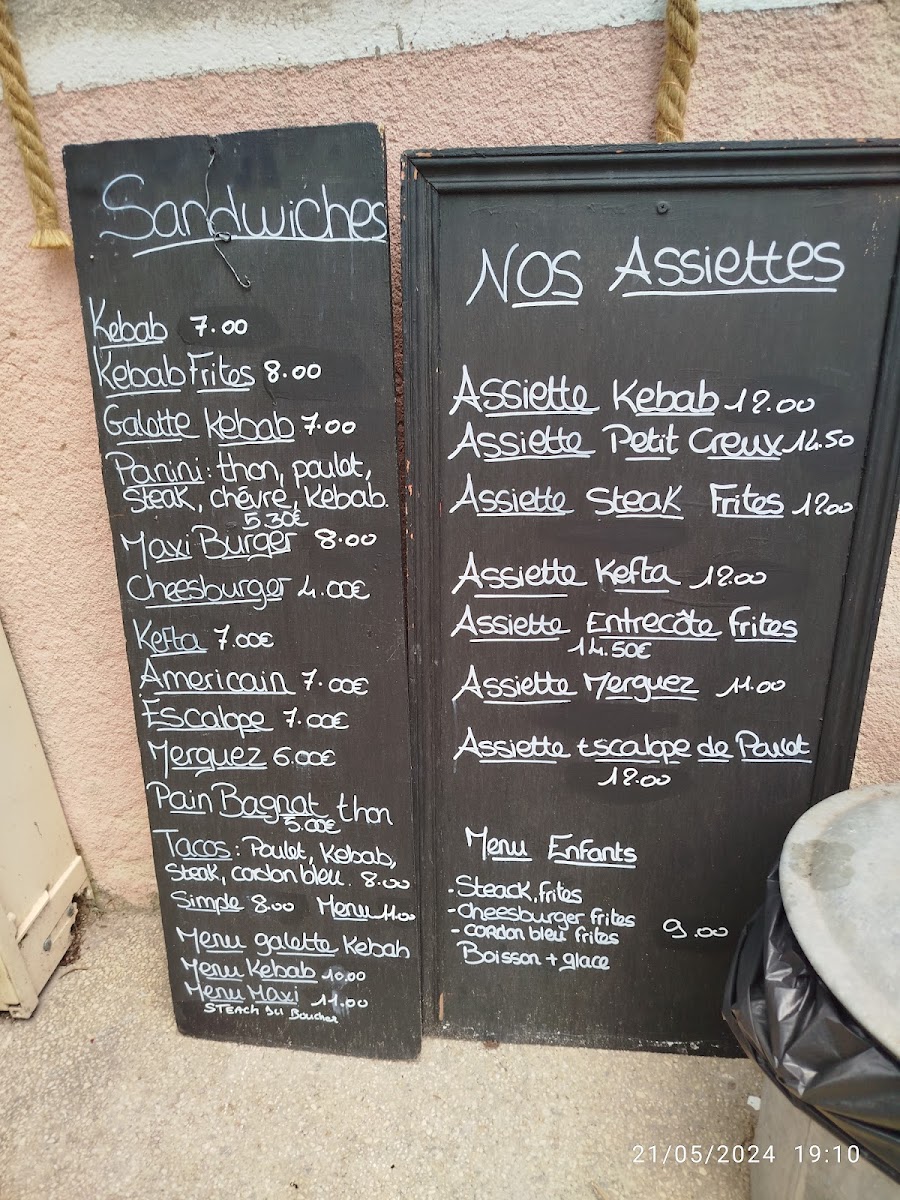 Sandwiches
Kebab 7.00
Kebab Frites 8.00
Galette Kebab 7.00
Panini : thon, poulet,
Steak, chévre, Kebab.
5.30€
Maxi Burger 8.00
Cheesburger 4.00€
Kefta 7.00€
Americain 7.00€
Escalope 7.00€
Merguez 6.00€
Pain Bagnat thon
5.00€
Tacos : Poulet, Kebab,
Steak, cordon bleu. 8.00
Simple 8.00 Menu 11.00
Menu galette Kebab
Menu Kebab 10.00
Menu Maxi 11.00
STEACH DU Boucher
NOS Assiettes
Assiette Kebab 12.00
Assiette Petit Creux 14.50
Assiette Steak Frites 12.00
Assiette Kefta 12.00
Assiette Entrecôte Frites
14.50€
Assiette Merguez 11.00
Assiette Escalope de Poulet
12.00
Menu Enfants
- Steack, frites
- Cheesburger frites
- cordon bleu frites 9.00
Boisson + glace
21/05/2024 19:10